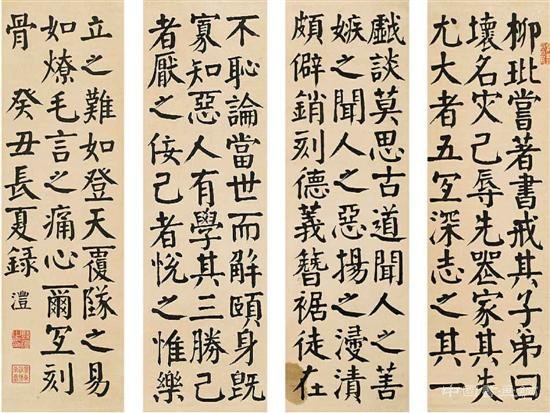 柳玭嘗著書戒其子弟曰
壞名灾己辱先喪家其失
尤大者五宜深志之其一
戱談莫思古道聞人之善
嫉之聞人之惡揚之浸漬
頗僻銷刻德義簪裾徒在
不恥論當世而解頤身既
寡知惡人有學其三勝己
者厭之佞己者悅之惟樂
立之難如登天覆隊之易
如燎毛言之痛心爾宜刻
骨 癸丑長夏錄 澧